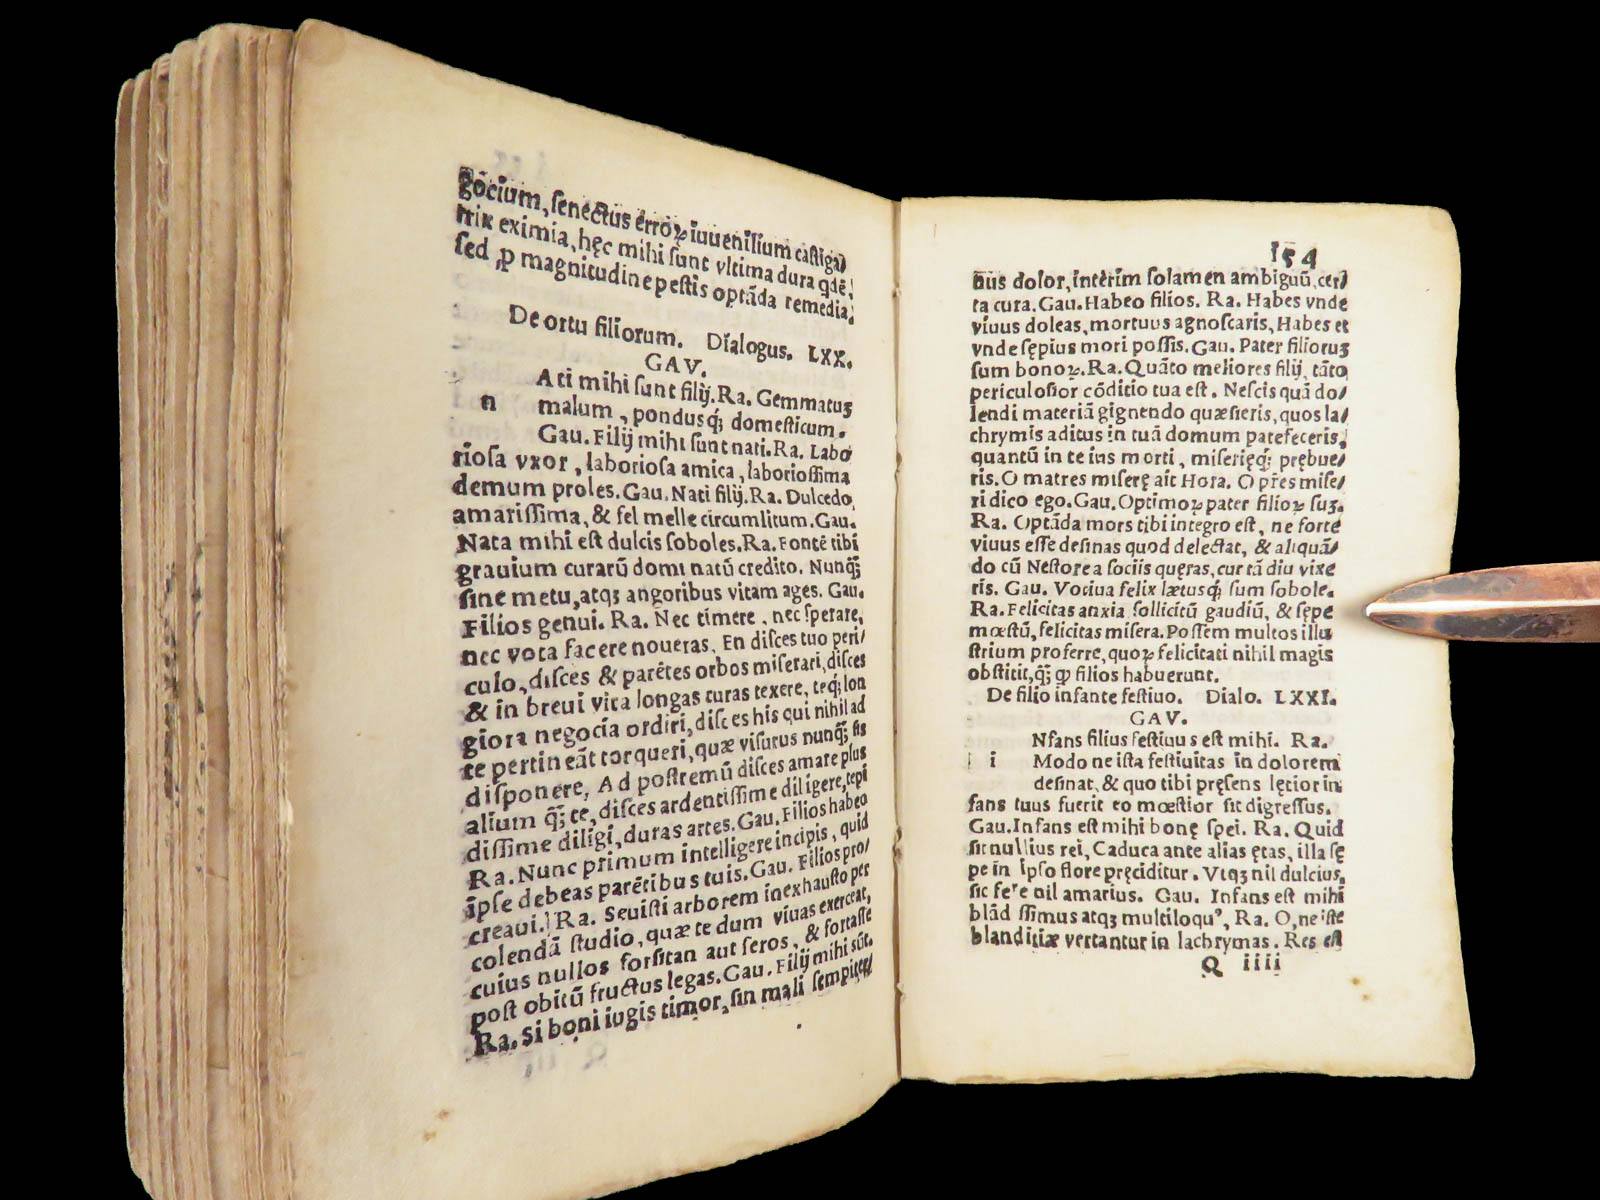 gōcium, ſenectus erroꝝ iuuenilium caſtiga/
trix eximia, hęc mihi ſunt vltima dura qdē,
ſed ꝓ magnitudine peſtis optāda remedia.
De ortu filiorum. Dialogus. LXX.
GAV.
Ati mihi ſunt filij. Ra. Gemmatuꝫ
n malum, pondusq́; domeſticum.
Gau. Filij mihi ſunt nati. Ra. Labo
rioſa vxor, laborioſa amica, laborioſſima
demum proles. Gau. Nati filij. Ra. Dulcedo
amariſſima, & fel melle circumlitum. Gau.
Nata mihi eſt dulcis ſoboles. Ra. Fontē tibi
grauium curarū domi natū credito. Nunq̄;
ſine metu, atqꝫ angoribus vitam ages. Gau.
Filios genui. Ra. Nec timere, nec ſperare,
nec vota facere noueras. En diſces tuo peri/
culo, diſces & parētes orbos miſerari, diſces
& in breui vita longas curas texere, teq́; lon
giora negocia ordiri, diſces his qui nihil ad
te pertineāt torqueri, quæ viſurus nunq̄; ſis
diſponere, Ad poſtremū diſces amare plus
alium q̄; te, diſces ardentiſſime diligere, tepi
diſſime diligi, duras artes. Gau. Filios habeo
Ra. Nunc primum intelligere incipis, quid
ipſe debeas parētibus tuis. Gau. Filios pro/
creaui. Ra. Seuiſti arborem inexhauſto per
colendā ſtudio, quæ te dum viuas exerceat,
cuius nullos forſitan aut ſeros, & fortaſſe
poſt obitū fructus legas. Gau. Filij mihi sūt.
Ra. Si boni iugis timor, ſin mali ſempiter/
154
nus dolor, interim ſolamen ambiguū, cer/
ta cura. Gau. Habeo filios. Ra. Habes vnde
viuus doleas, mortuus agnoſcaris, Habes et
vnde ſępius mori poſſis. Gau. Pater filioruꝫ
ſum bonoꝝ. Ra. Quāto meliores filij, tāto
periculoſior cōditio tua eſt. Neſcis quā do/
lendi materiā gignendo quæſieris, quos la/
chrymis aditus in tuā domum patefeceris,
quantū in te ius morti, miſerięq́; prębue/
ris. O matres miſerę ait Hora. O p̄res miſe/
ri dico ego. Gau. Optimoꝝ pater filioꝝ ſuꝫ.
Ra. Optāda mors tibi integro eſt, ne forte
viuus eſſe deſinas quod delectat, & aliquā/
do cū Neſtore a ſociis quęras, cur tā diu vixe
ris. Gau. Vociua felix lætusq́; ſum ſobole.
Ra. Felicitas anxia ſollicitū gaudiū, & ſępe
mœſtū, felicitas miſera. Poſſem multos illu
ſtrium proferre, quoꝝ felicitati nihil magis
obſtitit, q̄; ꝙ filios habuerunt.
De filio infante feſtiuo. Dialo. LXXI.
GAV.
Nfans filius feſtiuus eſt mihi. Ra.
i Modo ne iſta feſtiuitas in dolorem
deſinat, & quo tibi pręſens lętior in
fans tuus fuerit eo mœſtior ſit digreſſus.
Gau. Infans eſt mihi bonę ſpei. Ra. Quid
ſit nullius rei, Caduca ante alias ętas, illa ſę
pe in ipſo flore pręciditur. Vtqꝫ nil dulcius,
ſic fere nil amarius. Gau. Infans eſt mihi
blādiſſimus atqꝫ multiloquꝰ, Ra. O, ne iſte
blanditiæ vertantur in lachrymas. Res eſt
Q iiii